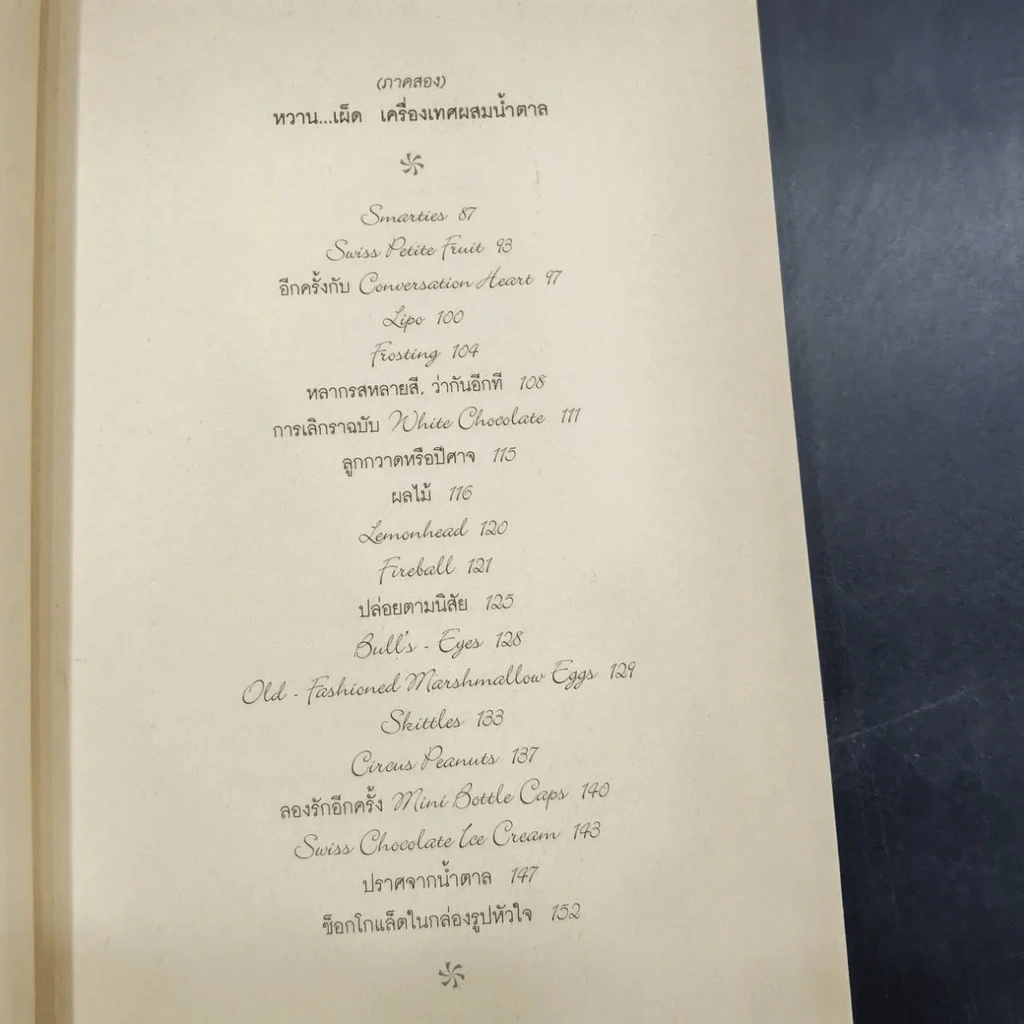 (ภาคสอง)
หวาน...เผ็ด เครื่องเทศผสมน้ำตาล
Smarties 87
Swiss Petite Fruit 93
อีกครั้งกับ Conversation Heart 97
Lipo 100
Frosting 104
หลากรสหลายสี, ว่ากันอีกที 108
การเลิกราฉบับ White Chocolate 111
ลูกกวาดหรือปีศาจ 115
ผลไม้ 116
Lemonhead 120
Fireball 121
ปล่อยตามนิสัย 125
Bull's - Eyes 128
Old - Fashioned Marshmallow Eggs 129
Skittles 133
Circus Peanuts 137
ลองรักอีกครั้ง Mini Bottle Caps 140
Swiss Chocolate Ice Cream 143
ปราศจากน้ำตาล 147
ช็อกโกแล็ตในกล่องรูปหัวใจ 152